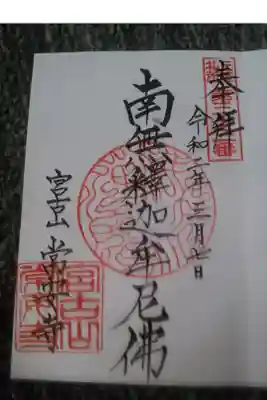 奉拝
令和二年三月七日
南無釋迦牟尼佛
宮山 常安寺